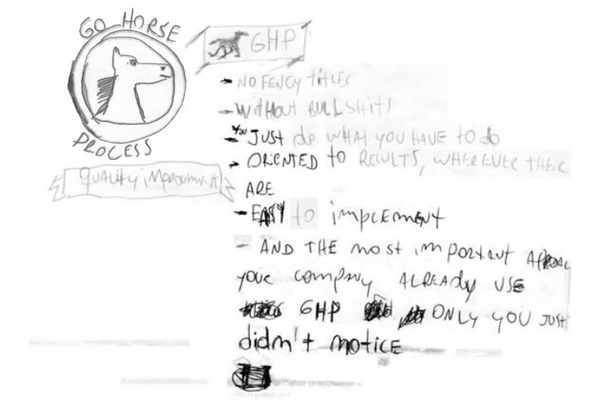 GO HORSE
PROCESS
QUALITY
GHP
- NO FENCY TITLES
- WITHOUT BULLSHITS
- YOU JUST do WHAT YOU HAVE TO do
- ORIENTED to RESULTS, WHEREVER THEIR
ARE
- EASY to implement
- AND THE most important
YOUR company ALREADY USE
GHP ONLY YOU JUST
didn't notice